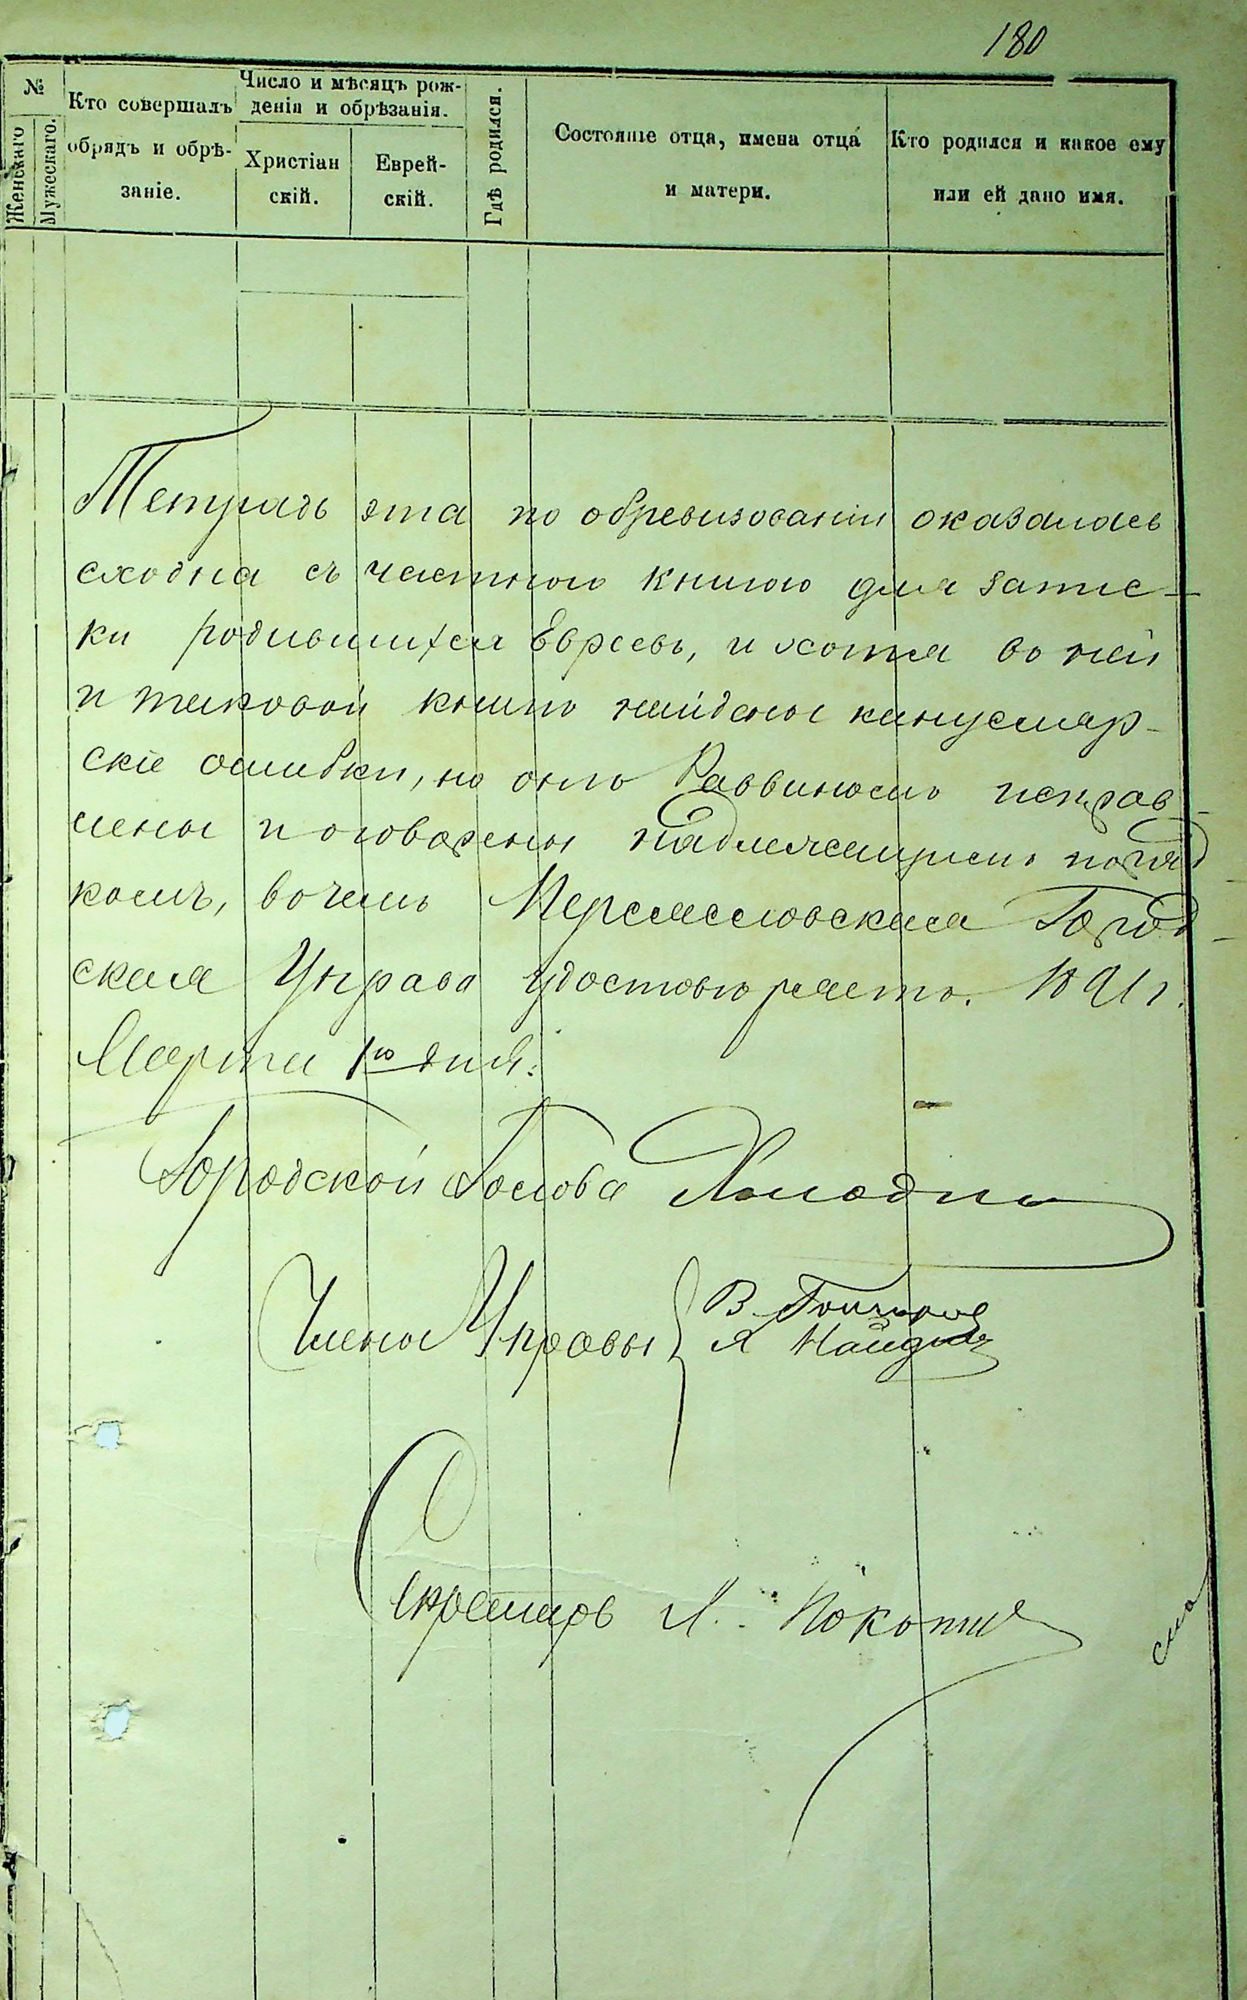 180
№
Женскаго
Мужескаго.
Кто совершалъ
обрядъ и обрѣ-
заніе.
Число и мѣсяцъ рож-
денія и обрѣзанія.
Христіан
скій.
Еврей-
скій.
Гдѣ родился.
Состояніе отца, имена отца
и матери.
Кто родился и какое ему
или ей дано имя.
Тетрадь эта по обревизованіи оказалась
сходна съ частною книгою для запис-
ки родившихся Евреевъ, и хотя во ней
и таковой книгѣ найдены канцеляр-
скіе ошибки, но онѣ Раввиномъ исправ-
лены и оговорены надлежащимъ поряд-
комъ, в чемъ Переяславская Город-
ская Управа удостовѣряетъ. 1891 г.
Марта 1го дня.
Городской Голова
Члены Управы
В. Гончаров
Я Найдин
Секретарь